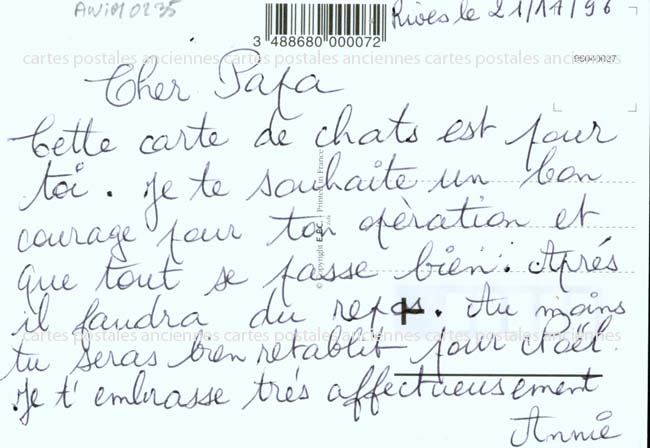 AWiM0235
Rives le 21/11/96
3 488680 000072
cartes postales anciennes cartes postales anciennes cartes postales anciennes
96040027
Cher Papa
Cette carte de chats est pour
toi. Je te souhaite un bon
courage pour ton opèration et
que tout se passe bien. Aprés
il faudra du repos. Au moins
cartes postales anciennes cartes postales anciennes cartes postales anciennes
tu seras bien retablit pour Noël.
Je t'embrasse trés affectueusement
Annie
© Copyright E.D.C. Printed in France